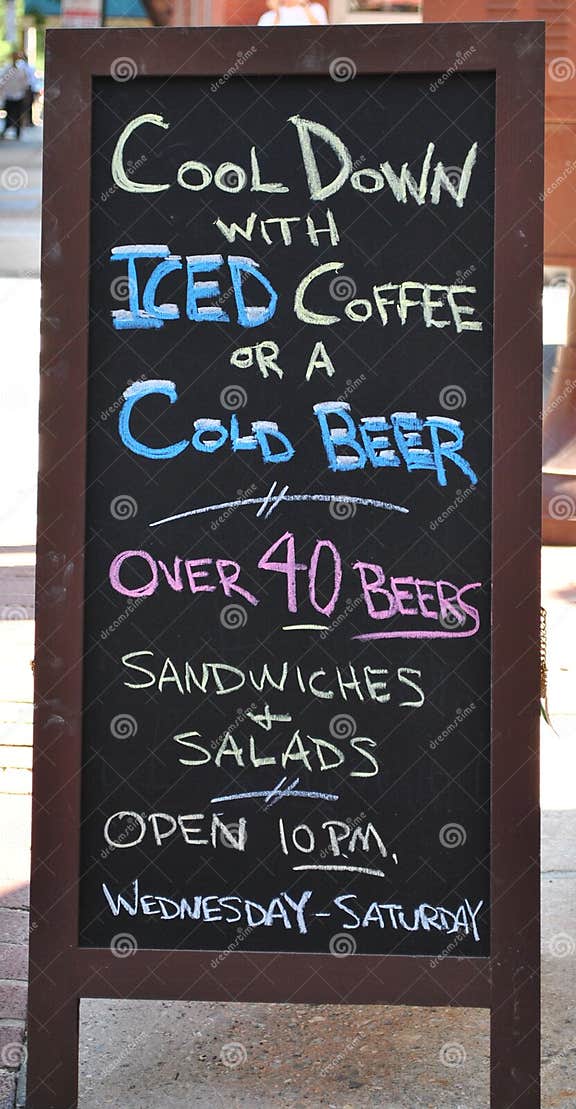 COOL DOWN
WITH
ICED COFFEE
OR A
COLD BEER
OVER 40 BEERS
SANDWICHES
+
SALADS
OPEN 10 P.M.
WEDNESDAY-SATURDAY